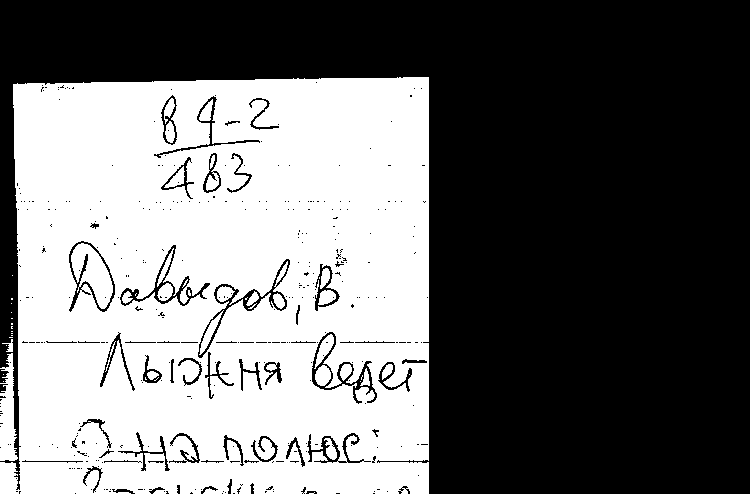 84-2
483
Давыдов, В.
Лыжня ведет
на полюс: